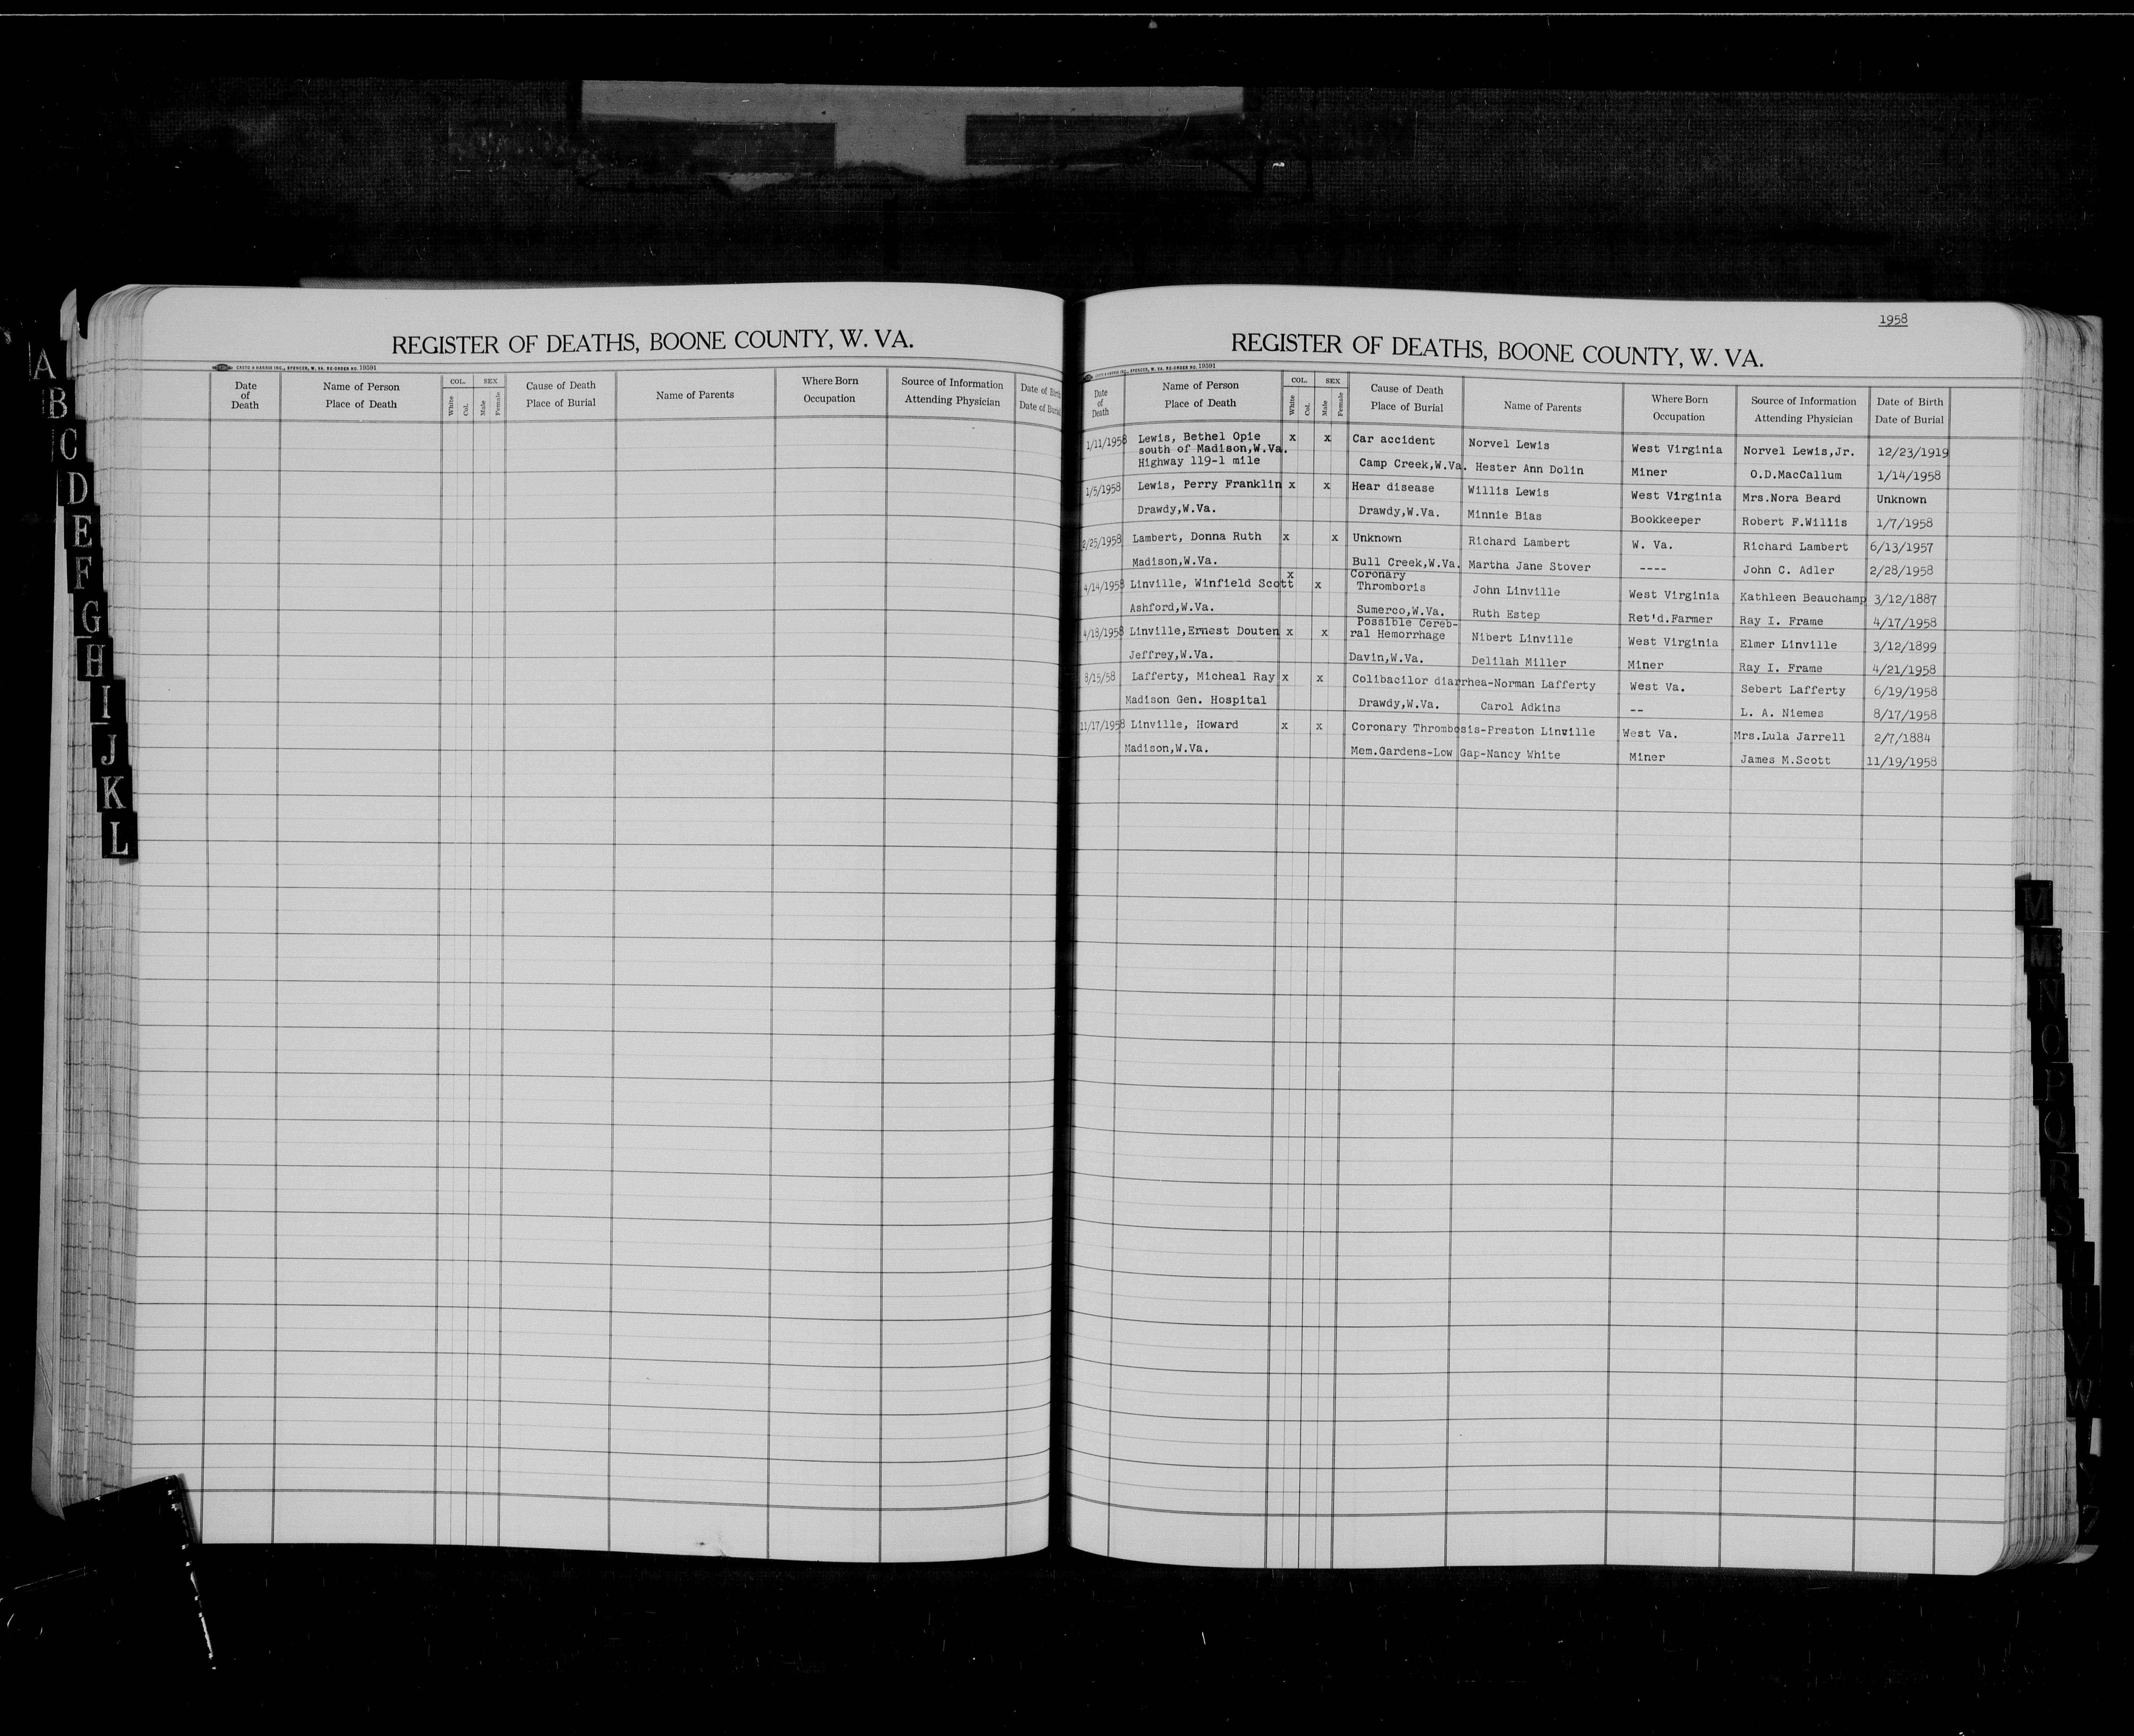 A
B
C
D
E
F
G
H
I
J
K
L
REGISTER OF DEATHS, BOONE COUNTY, W. VA.
CASTO & HARRIS INC., SPENCER, W. VA. RE-ORDER NO. 10591
Date of Death Name of Person Place of Death COL. White Col. SEX Male Female Cause of Death Place of Burial Name of Parents Where Born Occupation Source of Information Attending Physician Date of Birth Date of Burial
1958
REGISTER OF DEATHS, BOONE COUNTY, W. VA.
CASTO & HARRIS INC., SPENCER, W. VA. RE-ORDER NO. 10591
Date of Death Name of Person Place of Death COL. White Col. SEX Male Female Cause of Death Place of Burial Name of Parents Where Born Occupation Source of Information Attending Physician Date of Birth Date of Burial
1/11/1958 Lewis, Bethel Opie x x Car accident Norvel Lewis West Virginia Norvel Lewis,Jr. 12/23/1919
south of Madison,W.Va.
Highway 119-1 mile Camp Creek,W.Va. Hester Ann Dolin Miner O.D.MacCallum 1/14/1958
1/5/1958 Lewis, Perry Franklin x x Hear disease Willis Lewis West Virginia Mrs.Nora Beard Unknown
Drawdy,W.Va. Drawdy,W.Va. Minnie Bias Bookkeeper Robert F.Willis 1/7/1958
2/25/1958 Lambert, Donna Ruth x x Unknown Richard Lambert W. Va. Richard Lambert 6/13/1957
Madison,W.Va. Bull Creek,W.Va. Martha Jane Stover ---- John C. Adler 2/28/1958
x Coronary
4/14/1958 Linville, Winfield Scott x Thromboris John Linville West Virginia Kathleen Beauchamp 3/12/1887
Ashford,W.Va. Sumerco,W.Va. Ruth Estep Ret'd.Farmer Ray I. Frame 4/17/1958
Possible Cereb-
4/18/1958 Linville,Ernest Douten x x ral Hemorrhage Nibert Linville West Virginia Elmer Linville 3/12/1899
Jeffrey,W.Va. Davin,W.Va. Delilah Miller Miner Ray I. Frame 4/21/1958
8/15/58 Lafferty, Micheal Ray x x Colibacilor diarrhea-Norman Lafferty West Va. Sebert Lafferty 6/19/1958
Madison Gen. Hospital Drawdy,W.Va. Carol Adkins -- L. A. Niemes 8/17/1958
11/17/1958 Linville, Howard x x Coronary Thrombosis-Preston Linville West Va. Mrs.Lula Jarrell 2/7/1884
Madison,W.Va. Mem.Gardens-Low Gap-Nancy White Miner James M.Scott 11/19/1958
M
Mc
N
O
P
Q
R
S
U
V
W